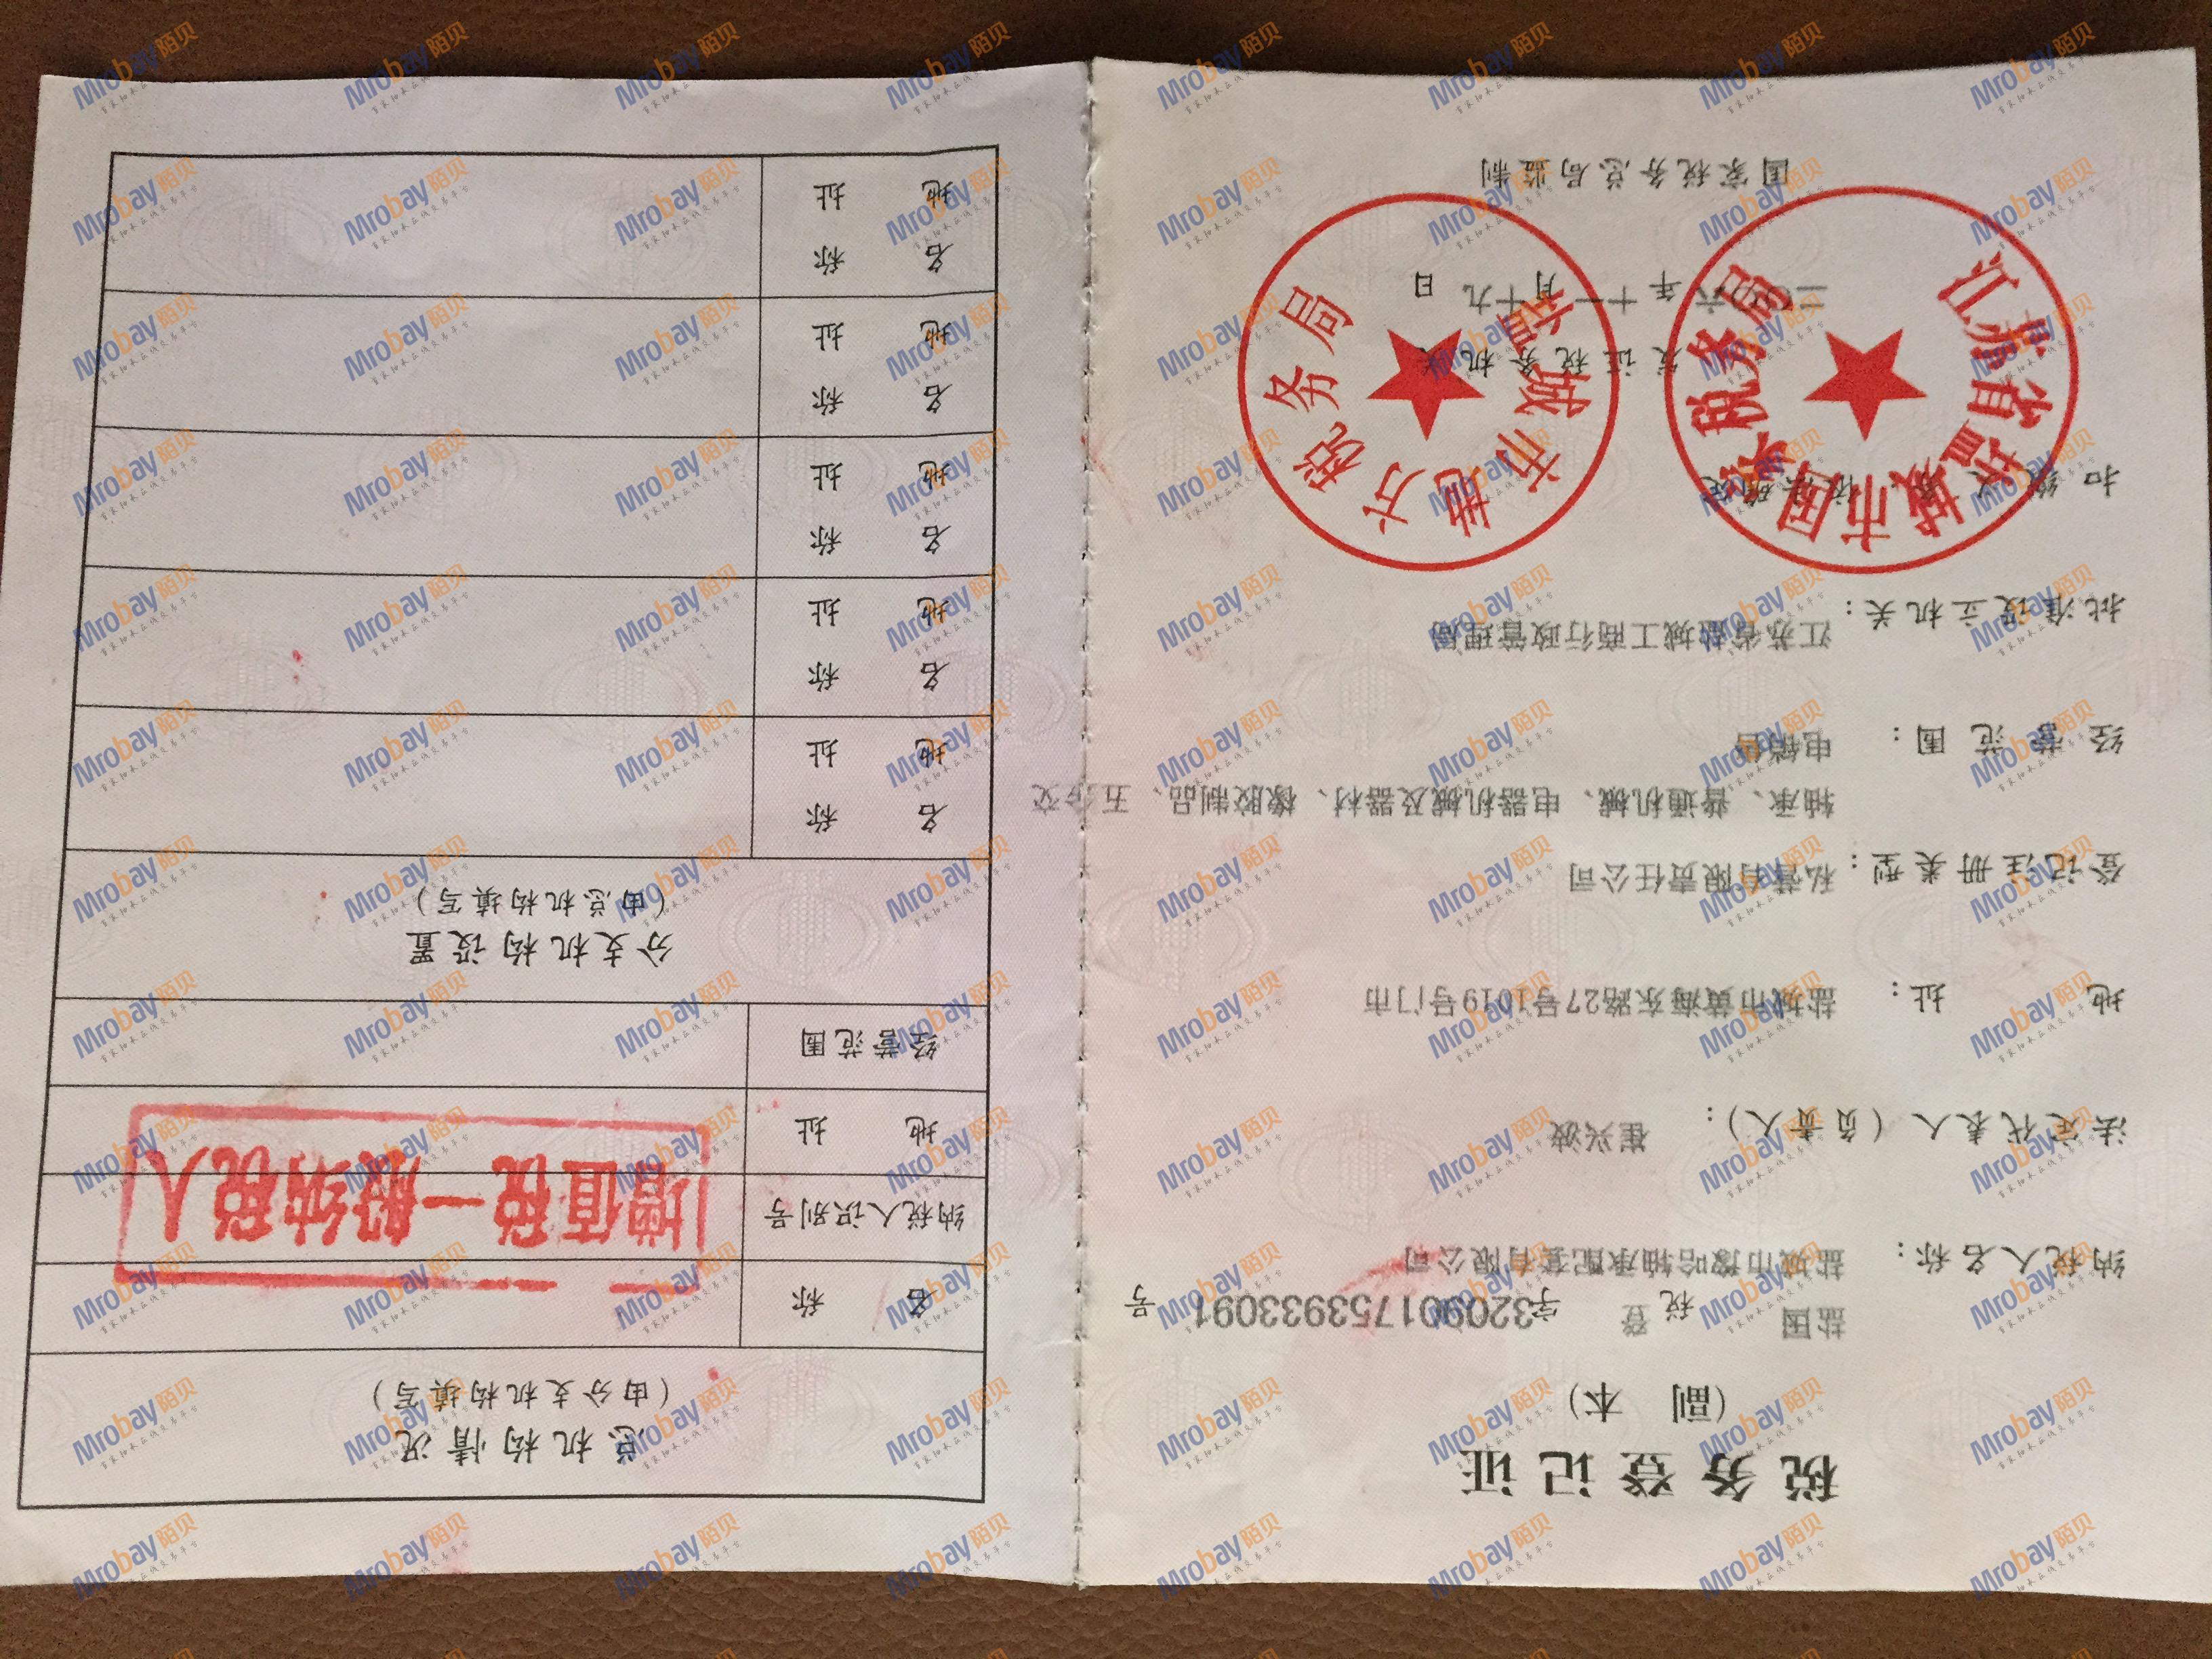 税务登记证
（副 本）
盐国 税 登 字320901753933091 号
纳税人名称： 盐城市豫哈轴承配套有限公司
法定代表人（负责人）： 崔兴波
地 址： 盐城市黄海东路27号1019号门市
登记注册类型： 私营有限责任公司
经营范围： 轴承、普通机械、电器机械及器材、橡胶制品、五金交
电销售
批准设立机关： 江苏省盐城工商行政管理局
扣缴义务： 依法确定
发证税务机关
二〇〇六年十一月十九日
国家税务总局监制
江苏省盐城市国家税务局
盐城市地方税务局
总机构情况
（由分支机构填写）
名 称
纳税人识别号
地 址
经营范围
增值税一般纳税人
分支机构设置
（由总机构填写）
名 称
地 址
名 称
地 址
名 称
地 址
名 称
地 址
名 称
地 址
Mrobay陌贝